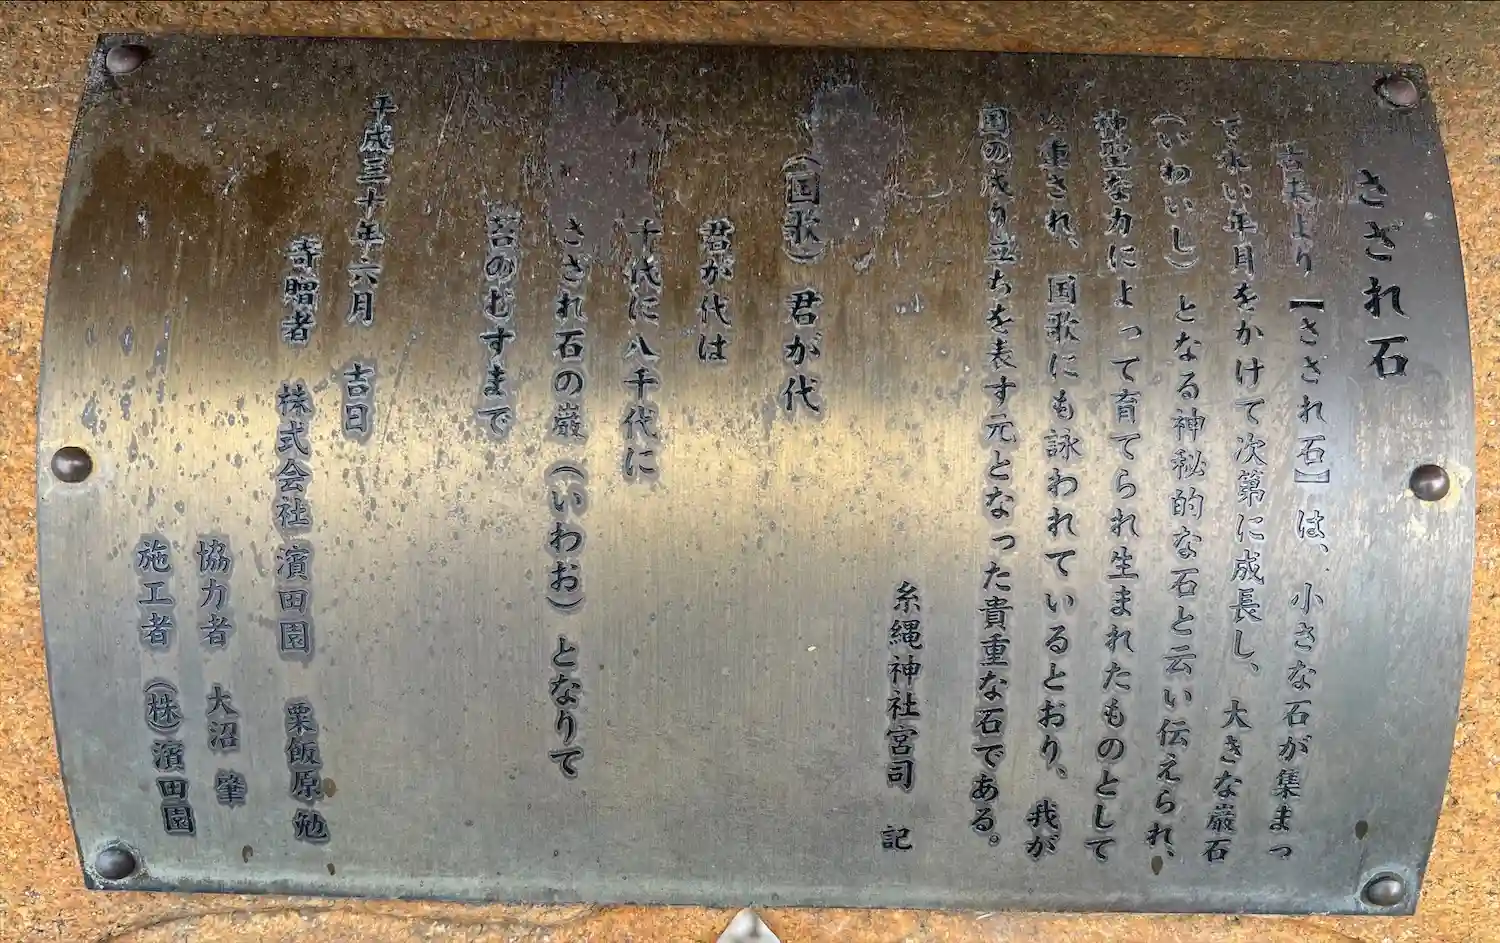 さざれ石
古来より【さざれ石】は、小さな石が集まっ
て永い年月をかけて次第に成長し、大きな巌石
(いわいし)となる神秘的な石と云い伝えられ、
神聖な力によって育てられ生まれたものとして
重され、国歌にも詠われているとおり、我が
国の成り立ちを表す元となった貴重な石である。
糸縄神社宮司 記
(国歌)君が代
君が代は
千代に八千代に
さざれ石の巌(いわお)となりて
苔のむすまで
平成三十年六月 吉日
寄贈者 株式会社 濱田園 粟飯原 勉
協力者 大沼 肇
施工者 (株)濱田園